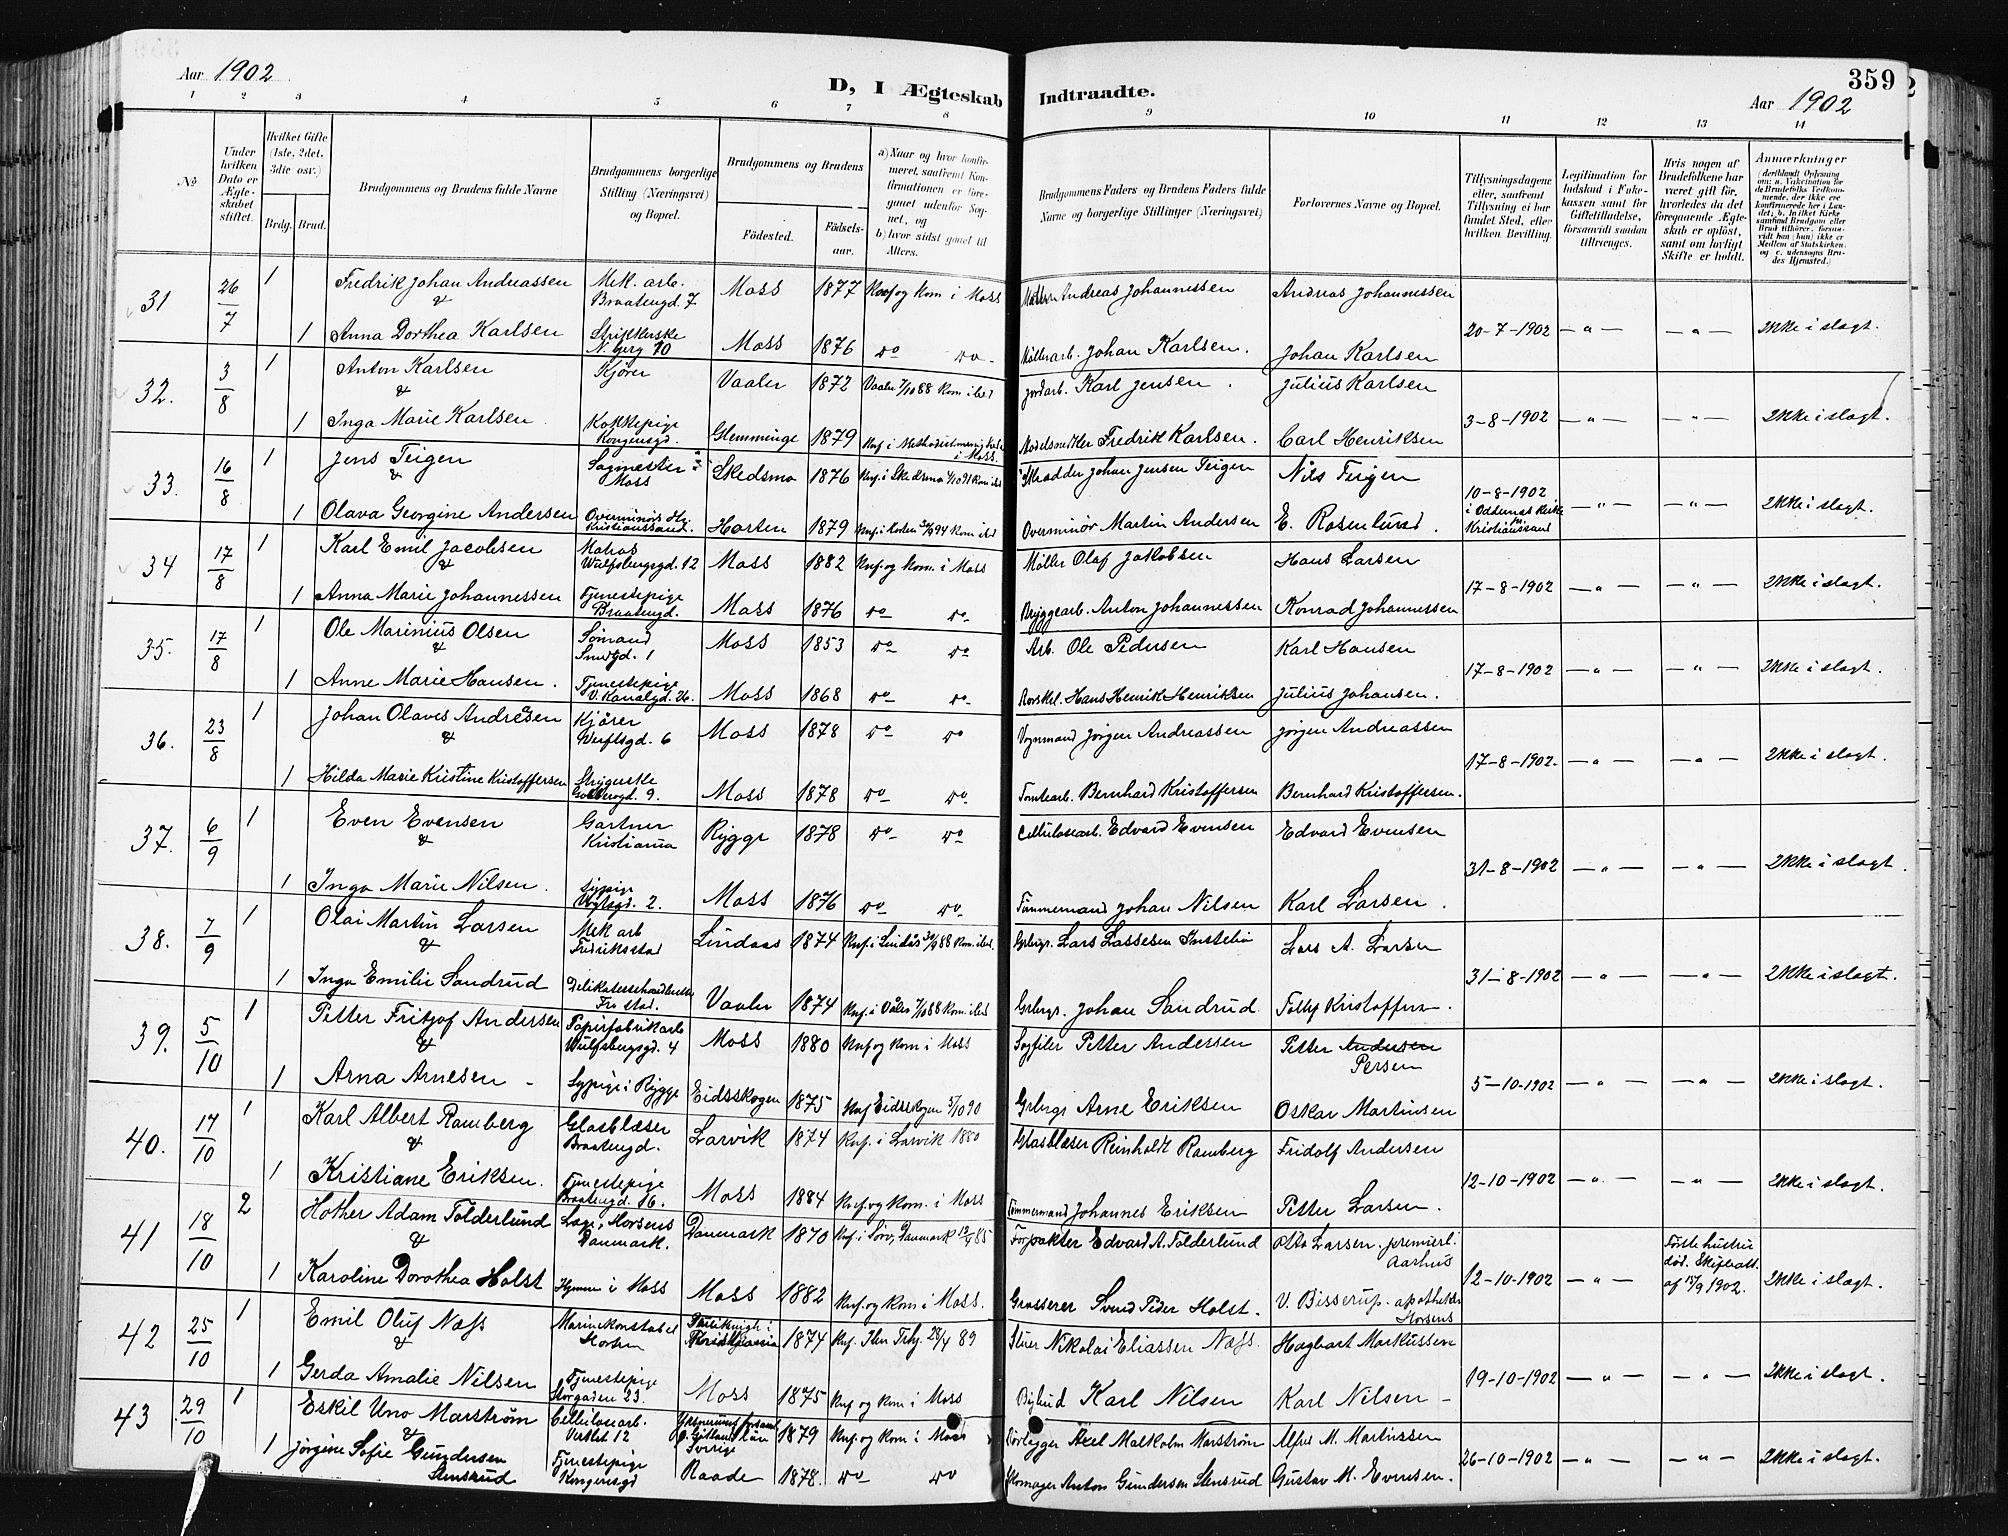 Aar 1902
D, I Ægteskab Indtraadte.
359
Aar 1902
1 2 3 4 5 6 7 8 9 10 11 12 13 14
No
Under hvilken Dato er Ægteskabet stiftet.
Hvilket Gifte (1ste, 2det, 3die osv.)
Brdg. Brud.
Brudgommens og Brudens fulde Navne
Brudgommens borgerlige Stilling (Næringsvei) og Bopæl.
Brudgommens og Brudens
Fødested.
Fødselsaar.
a) Naar og hvor konfirmeret, saafremt Konfirmationen er foregaaet udenfor Sognet, og
b) hvor sidst gaaet til Alters.
Brudgommens Faders og Brudens Faders fulde Navne og borgerlige Stillinger (Næringsvei)
Forlovernes Navne og Bopæl.
Tillysningsdagene eller, saafremt Tillysning ei har fundet Sted, efter hvilken Bevilling.
Legitimation for Indskud i Enkekassen samt for Giftetilladelse, forsaavidt saadan tiltrænges.
Hvis nogen af Brudefolkene har været gift før, hvorledes da det foregaaende Ægteskab er opløst, samt om lovligt Skifte er holdt.
Anmærkninger
31 26/7 1 Fredrik Johan Andreassen Mek. arb. Braatengd. 7 Moss 1877 Konf og kom i Moss Andreas Johannessen Andreas Johannessen
&
1 Anna Dorthea Karlsen Strikkerske 70 Moss 1876 do do Møllerarb. Johan Karlsen. Johan Karlsen 20-7-1902 — " — — " — Ikke i slægt.
32. 3/8 1 Anton Karlsen Kjører Vaaler 1872 Vaaler 7/10 88 Kom ibid Jordarb. Karl Jensen. Julius Karlsen
&
1 Inga Marie Karlsen Kokkepige Kongensgd. Glemminge 1879 Knf i Methodistmenigh i Moss. Fredrik Karlsen. Carl Henriksen 3-8-1902 — " — — " — Ikke i slægt.
33. 16/8 1 Jens Teigen Sagmester i Moss Skedsmo 1876 Knf. i Skedsmo Kom ibid Skrædder Johan Jensen Teigen Nils Teigen
&
1 Olava Georgine Andersen Kristianssand. Horten 1879 Knf. i Horten 94 Kom ibid Overminør Martin Andersen E. Rosenlund. 10-8-1902 i Oddernes Kirke Kristianssand — " — — " — Ikke i slægt.
34 17/8 1 Karl Emil Jacobsen Matros Wulfsbergsgd. 12 Moss 1882 Knf. og kom. i Moss Møller Olaf Jakobsen Hans Larsen
&
1 Anna Marie Johannessen Tjenestepige Braatengd. Moss 1876 do do Bryggearb. Anton Johannessen Konrad Johannessen 17-8-1902 — " — — " — Ikke i slægt.
35. 17/8 1 Ole Marinius Olsen Sømand 1 Moss 1853 do do Arb. Ole Pedersen Karl Hansen
&
1 Anne Marie Hansen. Tjenestepige V. Kanalgd. 26. Moss 1868 do do Hans Henrik Henriksen Julius Johansen. 17-8-1902 — " — — " — Ikke i slægt.
36. 23/8 1 Johan Olaves Andresen Kjører Werftsgd. 6 Moss 1878 do do Vognmand Jørgen Andreassen Jørgen Andreassen
&
1 Hilda Marie Kristine Kristoffersen 9. Moss 1878 do do Tomtearb. Bernhard Kristoffersen Bernhard Kristoffersen. 17-8-1902. — " — — " — Ikke i slægt.
37. 6/9 1 Even Evensen Gartner Kristiania Rygge 1878 do do Cellulosearb. Edvard Evensen Edvard Evensen
&
1 Inga Marie Nilsen. Sypige Vogtsgd. 2. Moss 1876 do do Tømmermand Johan Nilsen Karl Larsen. 31-8-1902 — " — — " — Ikke i slægt.
38. 7/9 1 Olai Martin Larsen Mek arb Fredriksstad Lindaas 1874 Knf. i Lindås 88 Kom. ibid. Grbrgr. Lars Lassesen Lars A. Larsen
&
1 Inga Emilie Sandrud Delikatessehandlerske Fr.stad. Vaaler 1874 Knf. i Våler 7/10 88 Kom. ibid Grbrgr. Johan Sandrud Kristoffersen. 31-8-1902 — " — — " — Ikke i slægt.
39. 5/10 1 Petter Fritjof Andersen Papirfabrikarb Wulfsbergsgd. 4 Moss 1880 Knf og kom i Moss Sagfiler Petter Andersen Petter Andersen Persen
&
1 Arna Arnesen - Sypige i Rygge Eidsskogen 1875 Knf Eidsskogen 5/10 90 Grbrgr Arne Eriksen Oskar Martinsen 5-10-1902 — " — — " — Ikke i slægt.
40. 17/10 1 Karl Albert Ramberg Glasblæser Braatengd. Larvik 1874 Knf. i Larvik 1880 Glasblæser Reinholdt Ramberg Fridolf Andersen
&
1 Kristiane Eriksen. Tjenestepige Braatengd. 16. Moss 1884 Knf. og kom. i Moss Tømmermand Johannes Eriksen Petter Larsen. 12-10-1902 — " — — " — Ikke i slægt.
41 18/10 2 Hother Adam Tolderlund Læge, Horsens Danmark. Danmark 1870 Knf. i Sorø, Danmark 85 Forpakter Edvard A. Tolderlund Otto Larsen. premierl. Aarhus
&
1 Karoline Dorothea Holst Hjemme i Moss Moss 1882 Knf. og kom i Moss. Grosserer Svend Peder Holst. V. Bisserup. apotheker Horsens 12-10-1902 — " — Første hustru død. Skifteatt. af 15/9 1902. Ikke i slægt.
42 25/10 1 Emil Oluf Næss Marinekonstabel Horten Kristiania 1874 Knf. 89 Nikolai Eliassen Næss. Hagbart Markussen
&
1 Gerda Amalie Nilsen Tjenestepige Storgaden 23. Moss 1875 Knf og kom i Moss Karl Nilsen Karl Nilsen - 19-10-1902 — " — — " — Ikke i slægt.
43 29/10 1 Eskil Uno Marstrøm Cellulosearb. 12 Sverige 1879 Knf. og kom i Moss Axel Malkolm Marstrøm Alfred M. Martinssen
&
1 Jørgine Sofie Gundersen Stensrud Tjenestepige Kongensgd Raade 1878. do do Skomager Anton Gundersen Stensrud Gustav M. Evensen. 26-10-1902 — " — — " — Ikke i slægt.